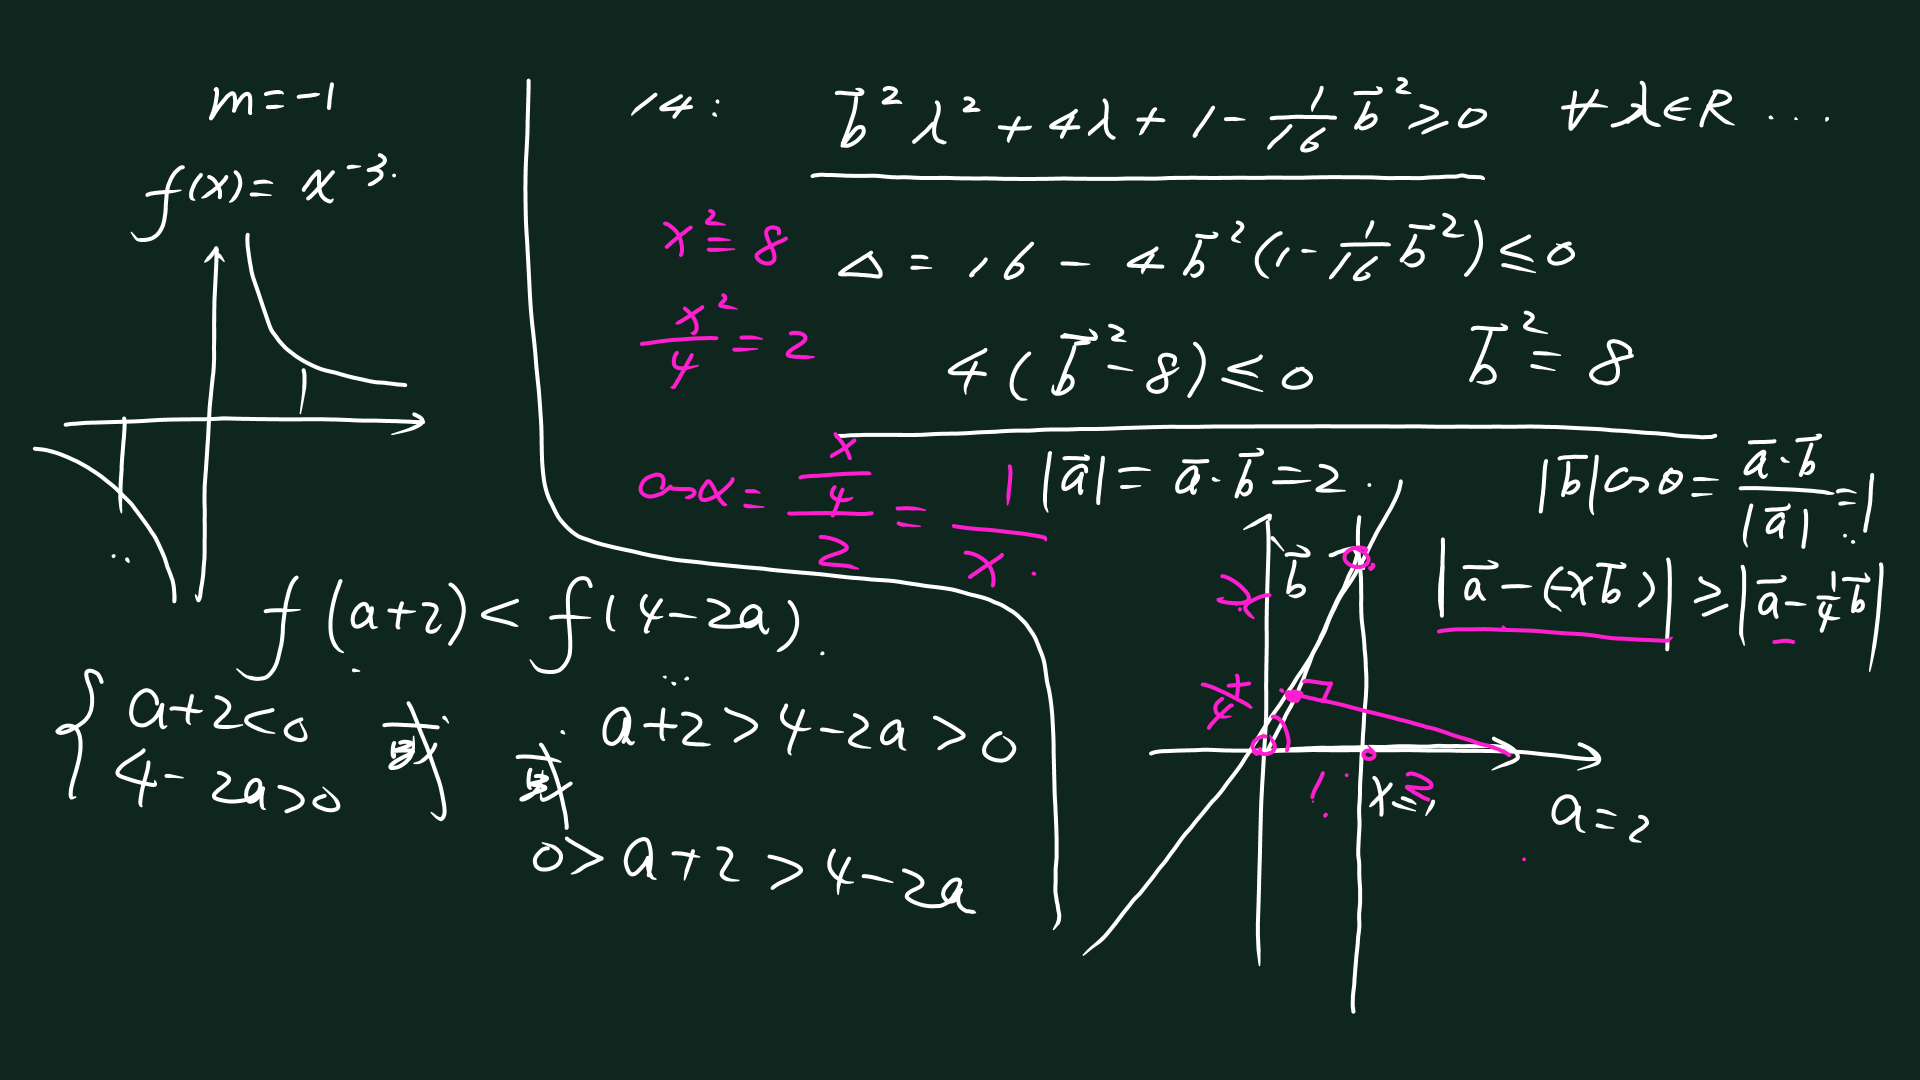 m=-1
f(x)= x⁻³.
f(a+2)<f(4-2a).
{ a+2<0
4-2a>0 或
或 a+2>4-2a>0
0>a+2>4-2a
14: b⃗²λ²+4λ+1-1/16 b⃗²≥0 ∀λ∈R ...
x²=8
Δ=16-4b⃗²(1-1/16 b⃗²)≤0
x²/4=2
4(b⃗²-8)≤0 b⃗²=8
cosα= (x/4)/2 = 1/x.
|a⃗|=a⃗·b⃗=2. |b⃗|cosθ= a⃗·b⃗/|a⃗| =1
|a⃗-(-xb⃗)|≥|a⃗-1/4b⃗|
b⃗
x
x/4
1 x=1 2
a=2